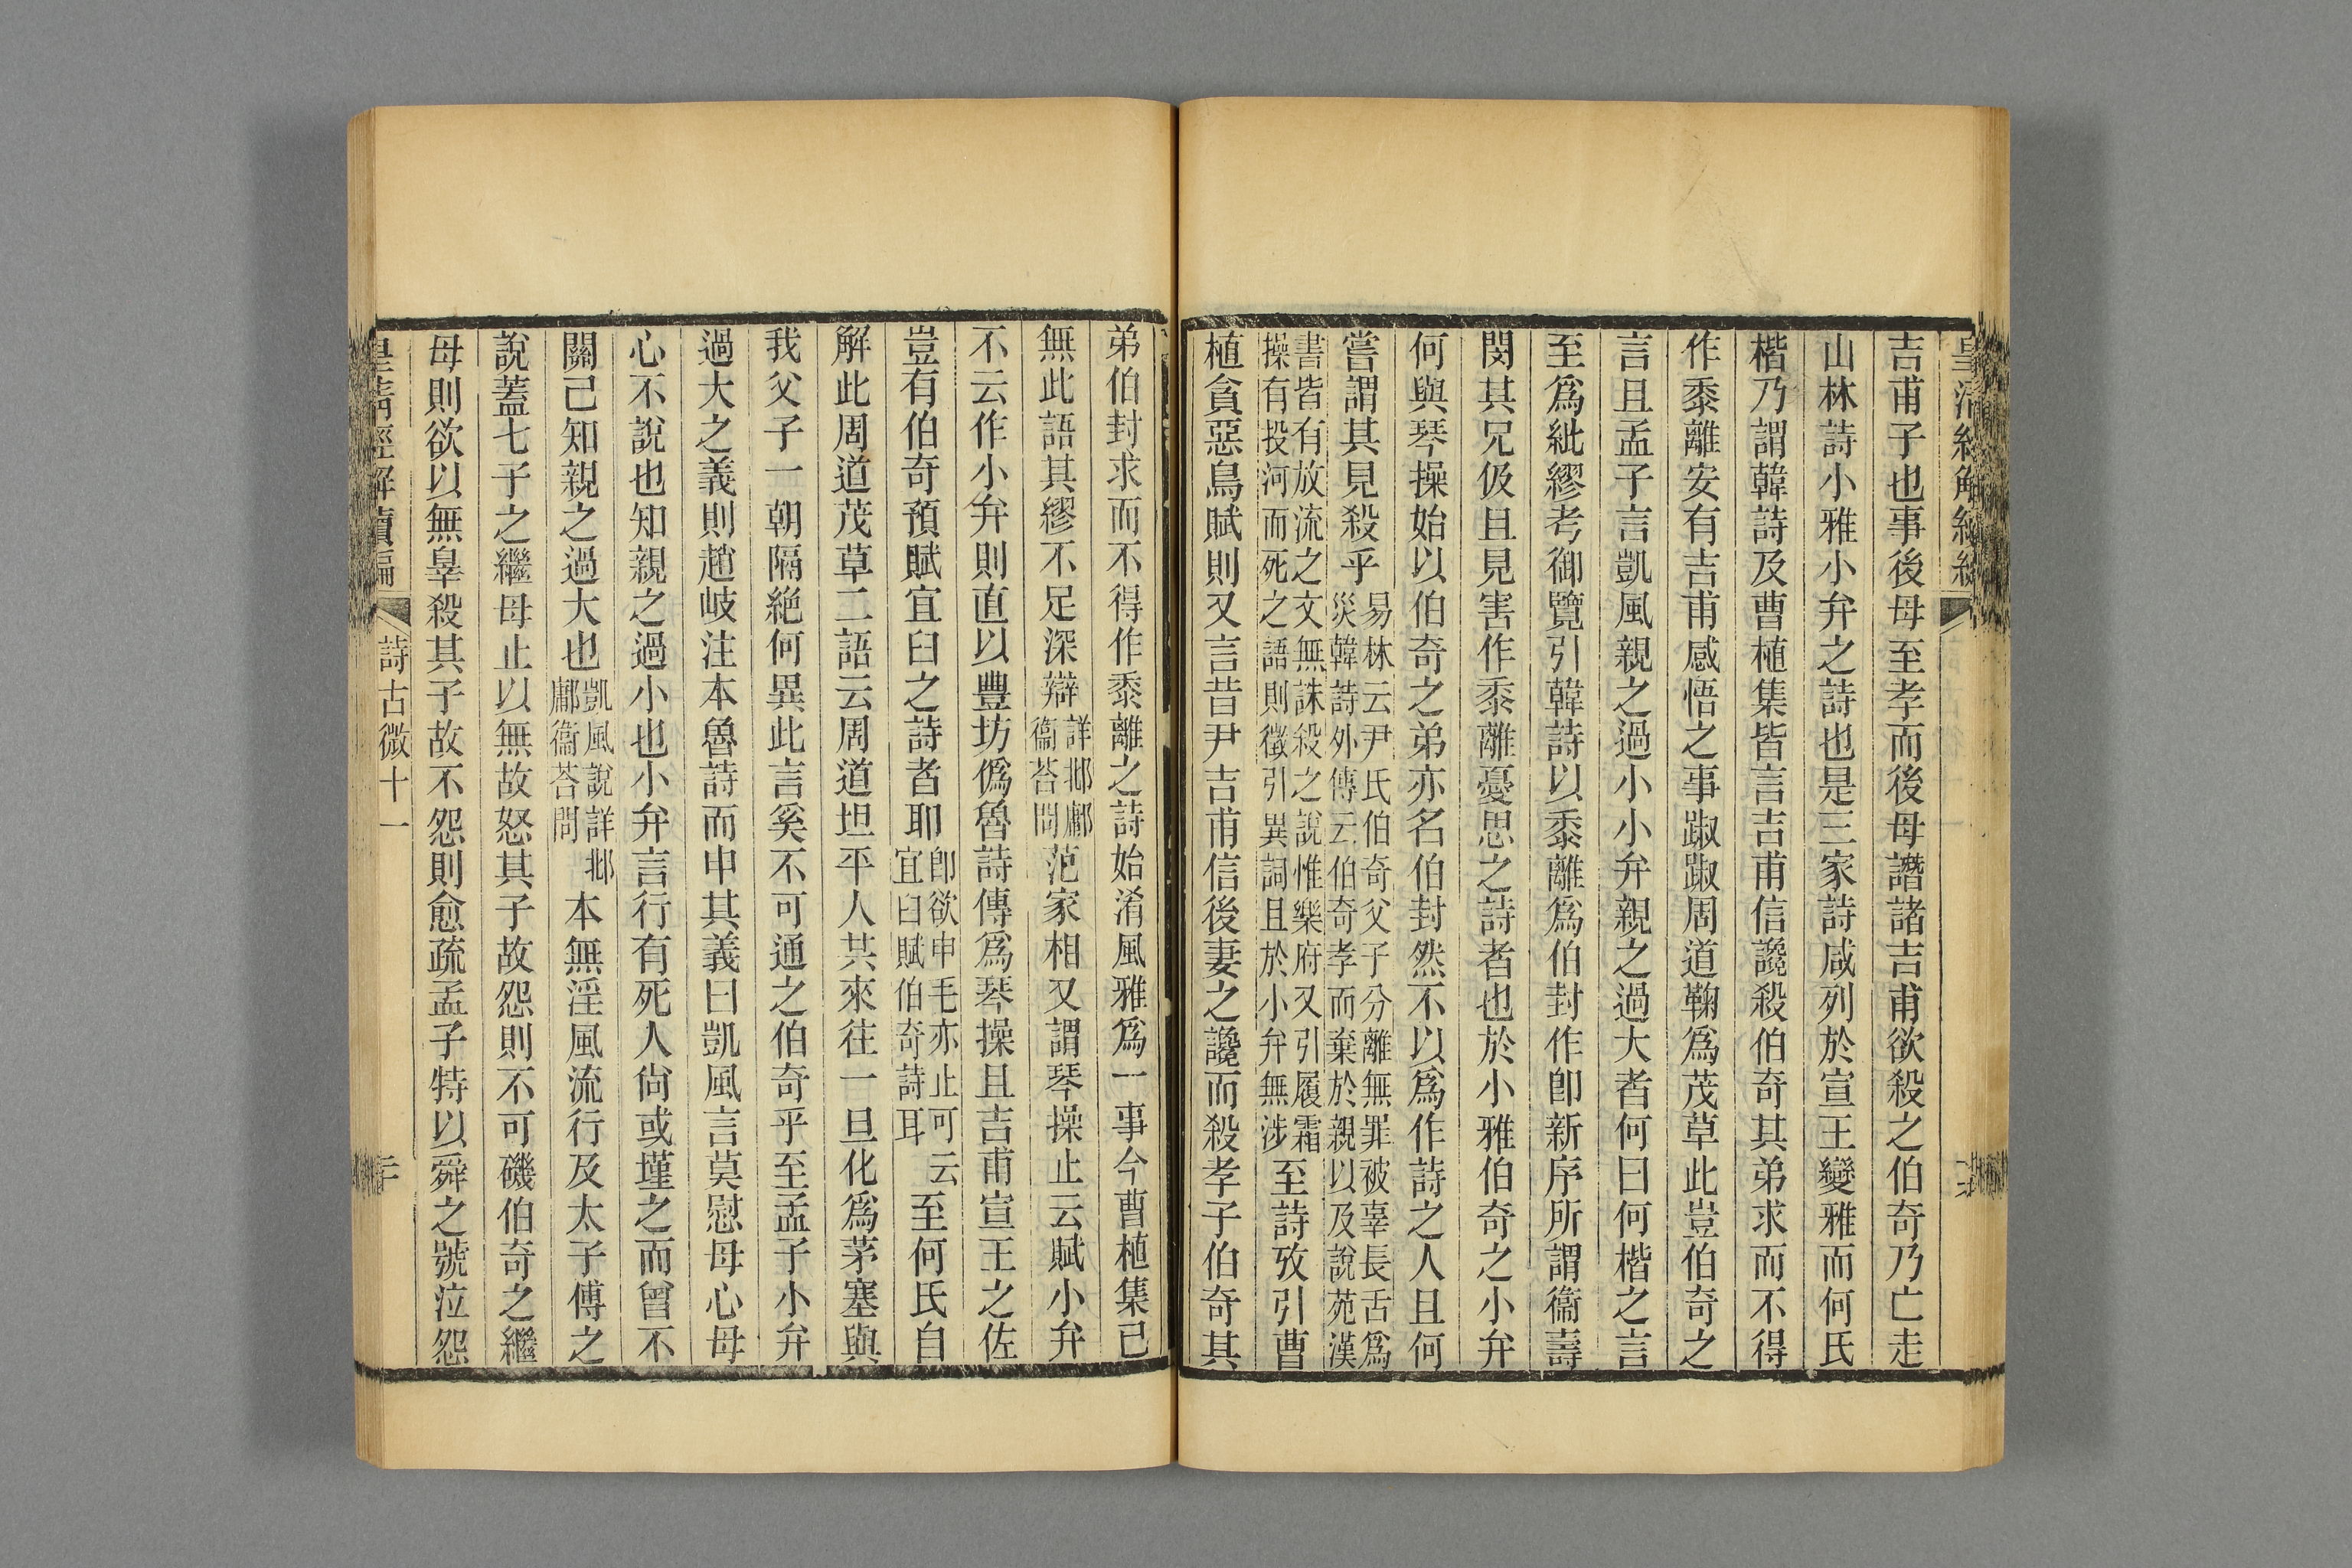 吉甫子也事後母至孝而後母譖諸吉甫欲殺之伯奇乃亡走
山林詩小雅小弁之詩也是三家詩咸列於宣王變雅而何氏
楷乃謂韓詩及曹植集皆言吉甫信讒殺伯奇其弟求而不得
作黍離安有吉甫感悟之事踧踧周道鞠爲茂草此豈伯奇之
言且孟子言凱風親之過小小弁親之過大者何曰何楷之言
至爲紕繆考御覽引韓詩以黍離爲伯封作卽新序所謂衞壽
閔其兄伋且見害作黍離憂思之詩者也於小雅伯奇之小弁
何與琴操始以伯奇之弟亦名伯封然不以爲作詩之人且何
嘗謂其見殺乎易林云尹氏伯奇父子分離無罪被辜長舌爲
災韓詩外傳云伯奇孝而棄於親以及說苑漢
書皆有放流之文無誅殺之說惟樂府又引履霜
操有投河而死之語則徵引異詞且於小弁無涉至詩攷引曹
植貪惡鳥賦則又言昔尹吉甫信後妻之讒而殺孝子伯奇其
弟伯封求而不得作黍離之詩始淆風雅爲一事今曹植集已
無此語其繆不足深辯詳邶鄘
衞荅問范家相又謂琴操止云賦小弁
不云作小弁則直以豐坊僞魯詩傳爲琴操且吉甫宣王之佐
豈有伯奇預賦宜臼之詩者耶卽欲申毛亦止可云
宜臼賦伯奇詩耳至何氏自
解此周道茂草二語云周道坦平人共來往一旦化爲茅塞與
我父子一朝隔絕何異此言奚不可通之伯奇乎至孟子小弁
過大之義則趙岐注本魯詩而申其義曰凱風言莫慰母心母
心不說也知親之過小也小弁言行有死人尙或墐之而曾不
關己知親之過大也凱風說詳邶
鄘衞荅問本無淫風流行及太子傅之
說蓋七子之繼母止以無故怒其子故怨則不可磯伯奇之繼
母則欲以無辠殺其子故不怨則愈疏孟子特以舜之號泣怨
皇淸經解續編
詩古微十一